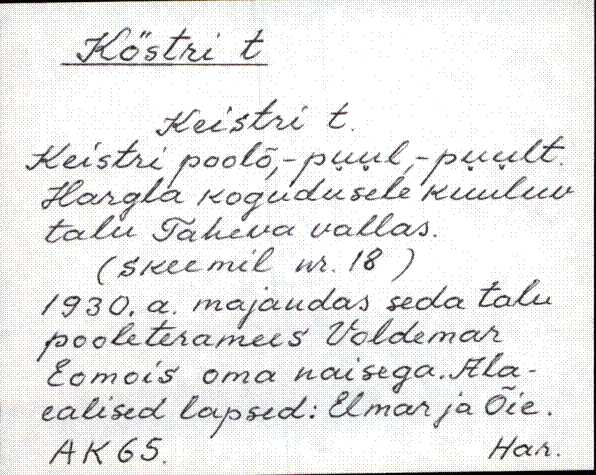 Köstri t
Keistri t.
Keistri poolõ,-pu̮u̮l,-pu̮u̮lt.
Hargla kogudusele kuuluv
talu Taheva vallas.
(skeemil nr. 18)
1930. a. majandas seda talu
pooleteramees Voldemar
Eomois oma naisega. Ala-
ealised lapsed: Elmar ja Õie.
AK65. Har.